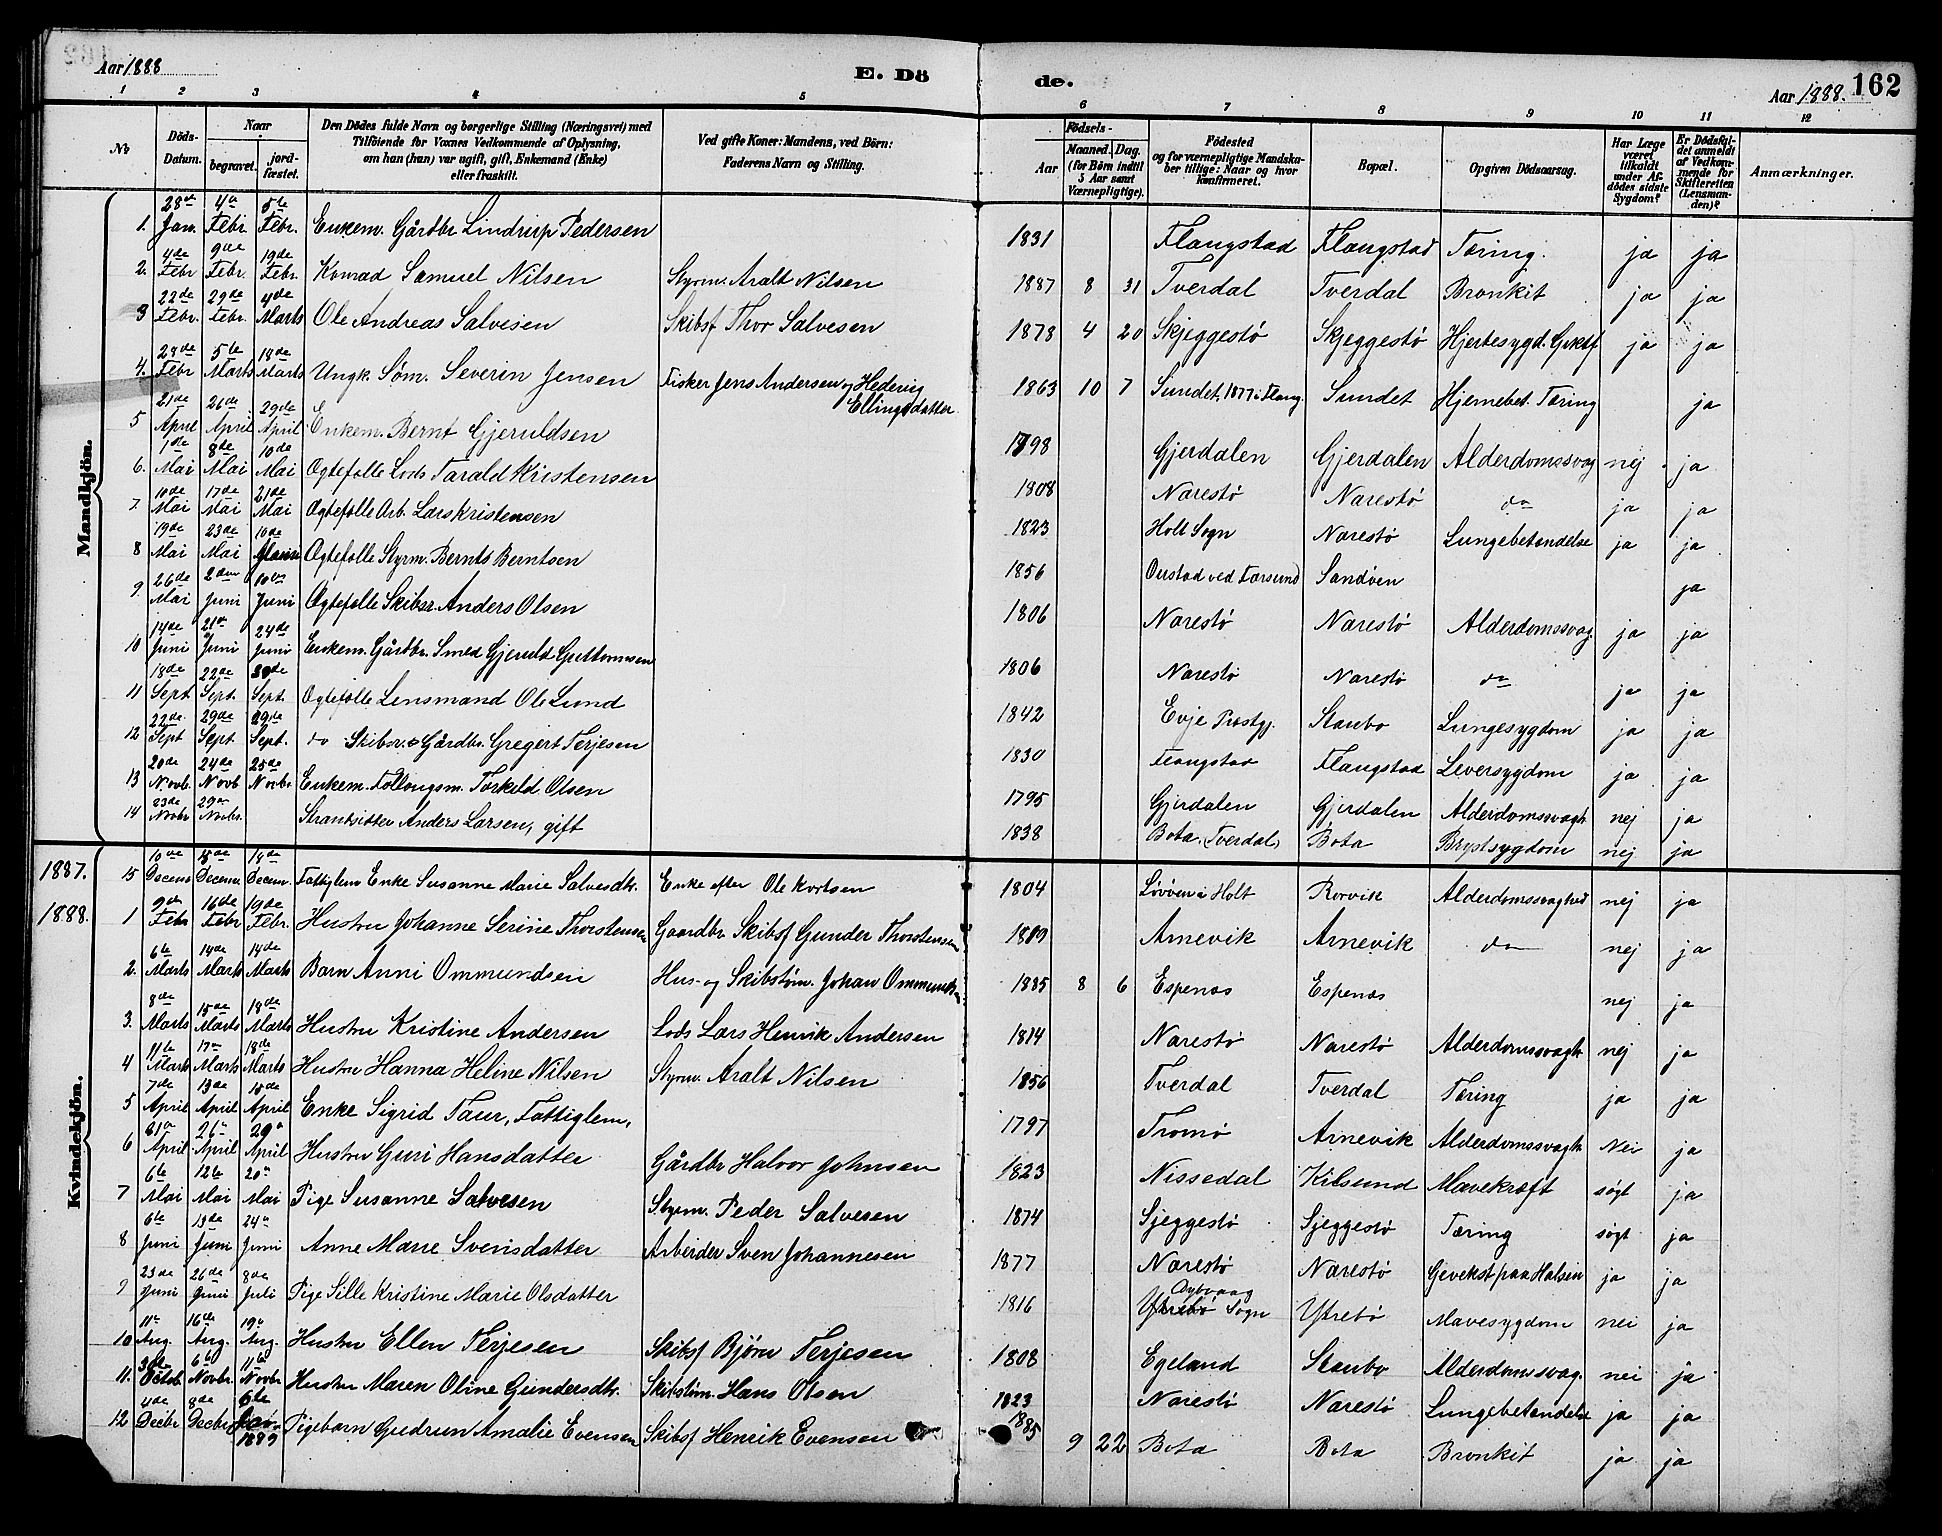 Aar 1888
E. Dö
de.
Aar 1888.
162
1 2 3 4 5 6 7 8 9 10 11 12
No
Döds-Datum.
Naar
begravet.
jord-fæstet.
Den Dödes fulde Navn og borgerlige Stilling (Næringsvei) med
Tilföiende for Voxnes Vedkommende af Oplysning,
om han (hun) var ugift, gift, Enkemand (Enke)
eller fraskilt.
Ved gifte Koner: Mandens, ved Börn:
Faderens Navn og Stilling.
Födsels-
Aar
Maaned. Dag.
(for Börn indtil
5 Aar samt
Værnepligtige).
Födested
og for værnepligtige Mandska-
ber tillige: Naar og hvor
konfirmeret.
Bopæl.
Opgiven Dödsaarsag.
Har Læge
været
tilkaldt
under Af-
dödes sidste
Sygdom?
Er Dödsfal-
det anmeldt
af Vedkom-
mende for
Skifteretten
(Lensman-
den)?
Anmærkninger.
Mandkjön.
1. 28de Jan. 4de Febr 5te Febr. Enkem. Gårdbr Lindrup Pedersen 1831 Flangstad Flangstad Tæring. ja ja
2. 4de Febr 9de Febr. 19de Febr. Konrad Samuel Nilsen Styrm. Aralt Nilsen 1887 8 31 Tverdal Tverdal Bronkit ja ja
3 22de Febr. 29de Febr. 4de Marts Ole Andreas Salvesen Skibsf Thor Salvesen 1878 4 20 Skjeggestø Skjeggestø Hjertesygd. ja ja
4. 28de Febr 5te Marts 18de Marts Ungk. Søm. Severin Jensen Fisker Jens Andersen og Hedevig Ellingsdatter 1863 10 7 Sundet, 1877 i Flang. Sundet Hjernebet. Tæring ja
5 21de April 26de April 29de April Enkem. Bernt Gjeruldsen 1798 Gjerdalen Gjerdalen Alderdomssvag nej ja
6. 1de Mai 8de Mai 10de Mai Ægtefolle Lods Tarald Kristensen 1808 Narestø Narestø do ja ja
7. 10de Mai 17de Mai 21de Mai Ægtefolle Arb. Lars Kristensen 1823 Holt Sogn Narestø Lungebetændelse ja ja
8 19de Mai 23de Mai 10de Juni Ægtefolle Styrm. Bernts Berntsen 1856 Oustad ved Farsund Sandøen ja
9. 26de Mai 2den Juni 10de Juni Ægtefolle Skibsr. Anders Olsen 1806 Narestø Narestø Alderdomssvag. ja ja
10 14de Juni 21de Juni 24de Juni Enkem. Gårdbr. Smed Gjeruld Guttormsen 1806 Narestø Narestø do ja ja
11 18de Sept. 22de Sept. 30de Sept. Ægtefolle Lensmand Ole Lund 1842 Evje Præstgj. Staubo Lungesygdom ja ja
12 22de Sept 29de Sept 29de Sept. do Skibsr. & Gårdbr. Gregert Terjesen 1830 Flangstad Flangstad Leversygdom ja ja
13 20de Novb. 24de Novb 25de Novbr Enkem. Torkild Olsen 1795 Gjerdalen Gjerdalen Alderdomssvagh nej ja
14 23de Novbr 29de Novbr. Strandsitter Anders Larsen, gift 1838 Bota (Tverdal) Bota Brystsygdom nej ja
Kvindekjön.
1887. 15 10de Decemb 15de Decem. 18de Decem. Fattiglem Enke Susanne Marie Salvesdtr. Enke efter Ole Kortsen 1804 Løvøen i Holt Rorvik Alderdomssvaghed nej ja
1888. 1 9de Febr 16de Febr 19de Febr. Hustru Johanne Serine Thorstensen Gaardbr Skibsf Gunder Thorstensen 1809 Arnevik Arnevik do nej ja
2. 6te Marts 14de Marts 14de Marts Barn Anni Ommundsen Hus- og Skibstøm. Johan Ommundsen 1885 8 6 Espenes Espenes nej ja
3. 8de Marts 15de Marts 18de Marts Hustru Kristine Andersen Lods Lars Henrik Andersen 1814 Narestø Narestø Alderdomssvagh nej ja
4 11te Marts 17de Marts 18de Marts Hustru Hanna Heline Nilsen Styrm. Aralt Nilsen 1856 Tverdal Tverdal Tæring ja ja
5 7de April 13de April 15de April Enke Sigrid Taur, Fattiglem, 1797 Tromø Arnevik Alderdomssvagh Nei ja
6 21de April 26de April 29de April Hustru Guri Hansdatter Gårdbr Halvor Johnsen 1823 Nissedal Kilsund Mavekræft søgt ja
7 6te Mai 12te Mai 20de Mai Pige Susanne Salvesen Styrm. Peder Salvesen 1874 Sjeggestø Sjeggestø Tæring søgt ja
8 6te Juni 13de Juni 24de Juni Anne Marie Svensdatter Arbeider Sven Johannesen 1877 Narestø Narestø Gevekst paa Halsen ja ja
9 23de Juni 26de Juni 8de Juli Pige Sille Kristine Marie Olsdatter 1816 Dybvaag Sogn Ytrebø Mavesygdom nei ja
10 11te Aug. 16de Aug. 19de Aug. Hustru Ellen Terjesen Skibsf Bjørn Terjesen 1808 Egeland Staubo Alderdomssvag. nei ja
11. Octob. 6te Novbr. 11te Novbr. Hustru Maren Oline Gundersdtr. Skibstøm. Hans Olsen 1823 Narestø Narestø Lungebetændelse ja ja
12 4de Decbr 8de Decbr 6te Jan. 1889 Pigebarn Gudrun Amalie Evensen Skibsf Henrik Evensen 1885 9 22 Bota Bota Bronkit ja ja